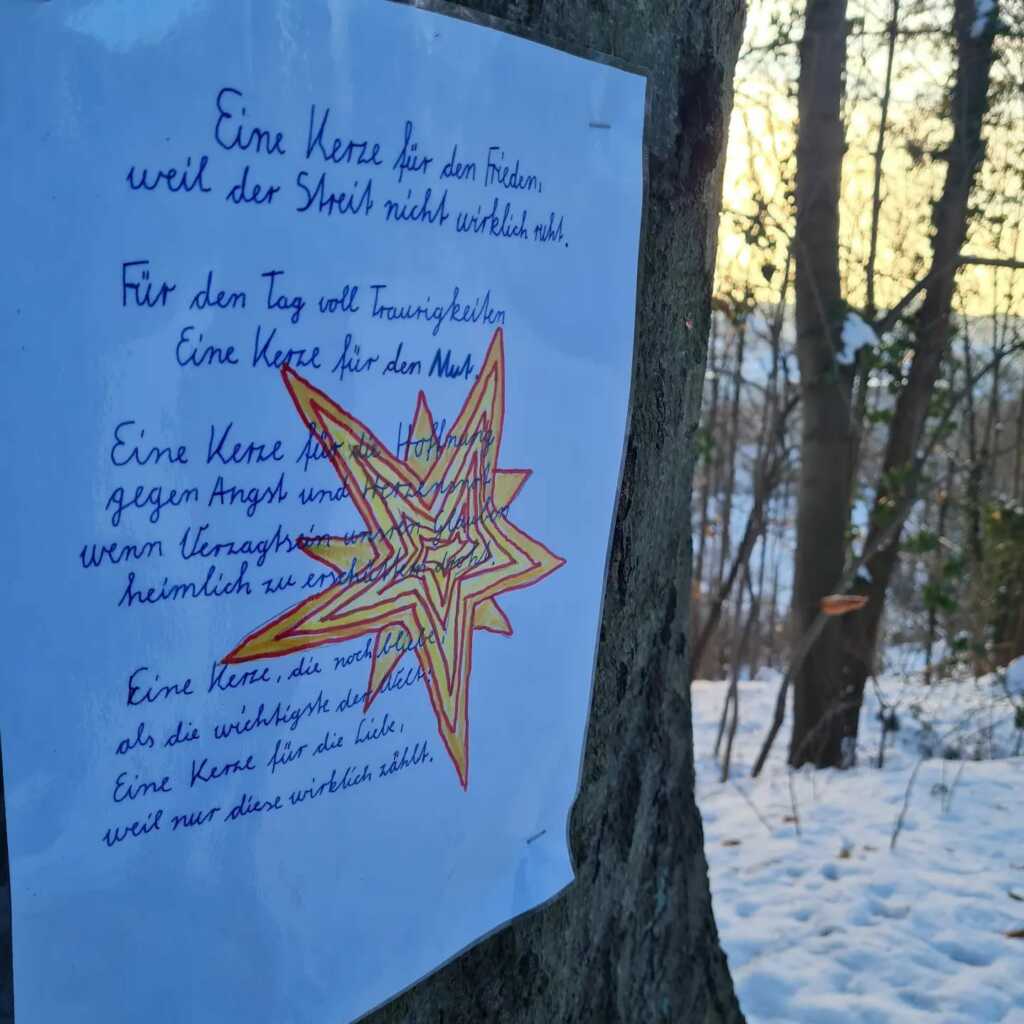 Eine Kerze für den Frieden,
weil der Streit nicht wirklich ruht.
Für den Tag voll Traurigkeiten
Eine Kerze für den Mut.
Eine Kerze für die Hoffnung
gegen Angst und Herzensnot
wenn Verzagtsein unsren Glauben
heimlich zu erschüttern droht.
Eine Kerze, die noch bliebe
als die wichtigste der Welt:
Eine Kerze für die Liebe,
weil nur diese wirklich zählt.